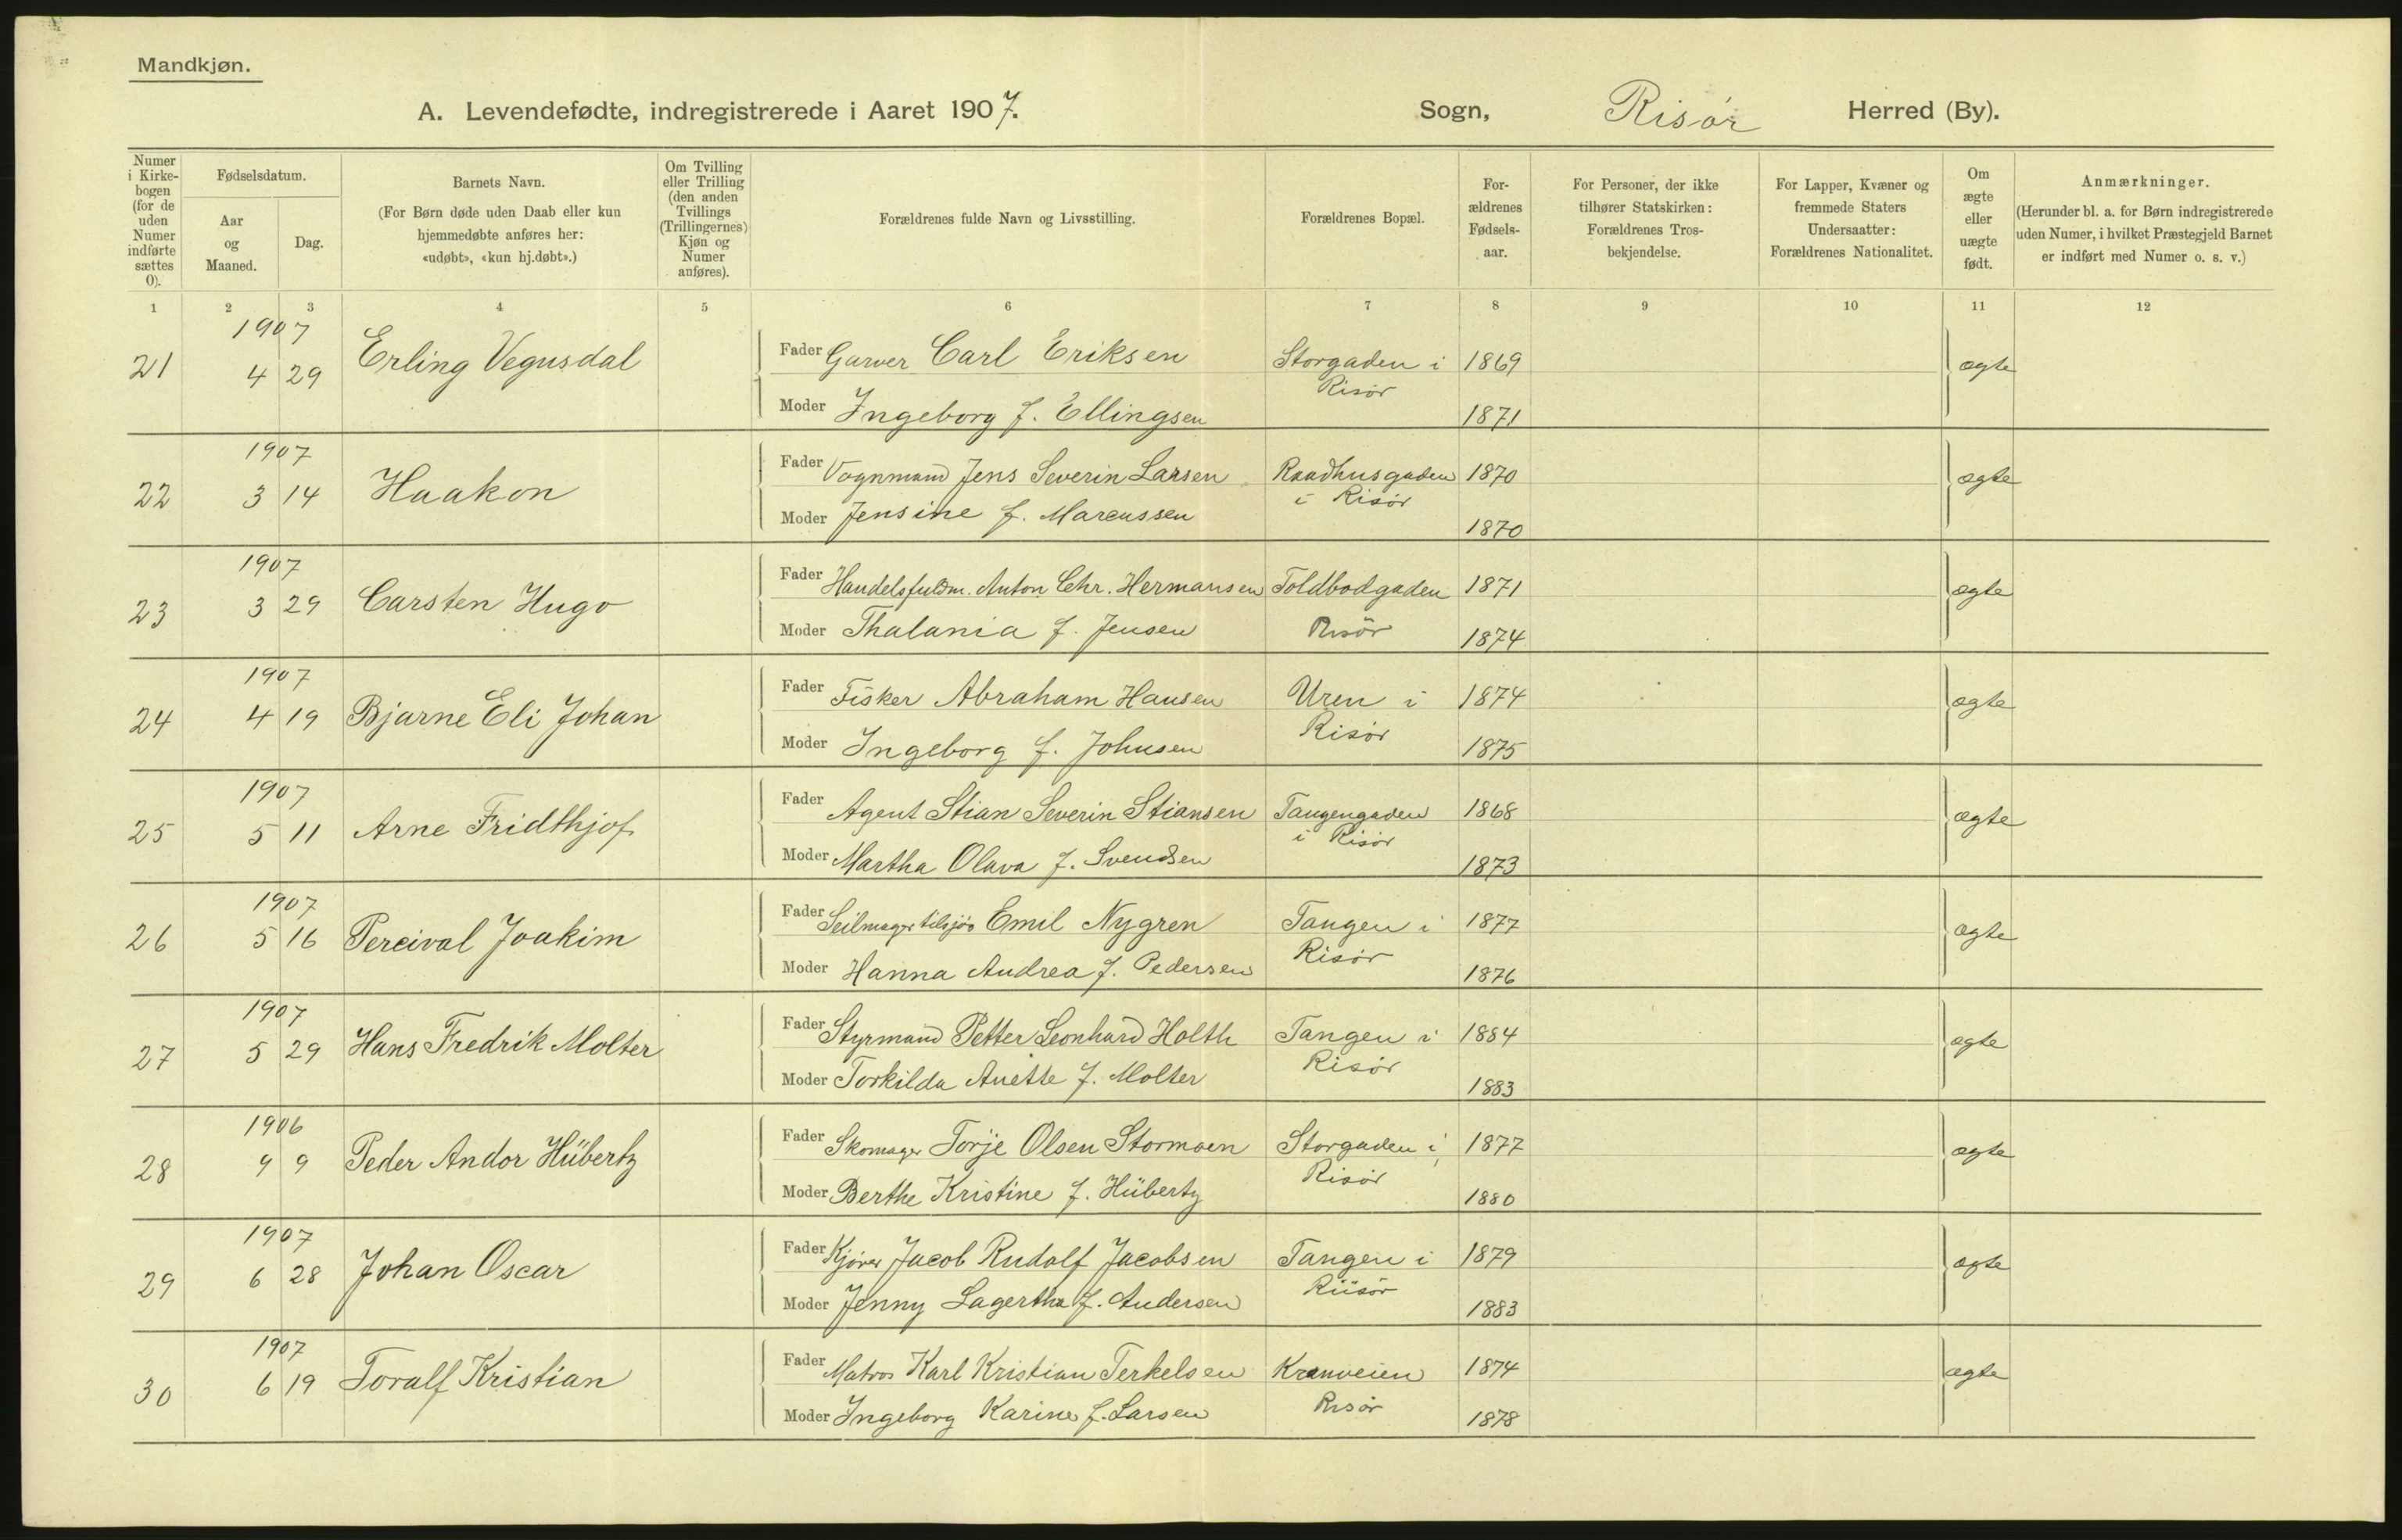 Mandkjøn.
A. Levendefødte, indregistrerede i Aaret 1907. Sogn, Risør Herred (By).
Numer i Kirke-bogen (for de uden Numer indførte sættes 0).
Fødselsdatum.
Aar og Maaned.
Dag.
Barnets Navn.
(For Børn døde uden Daab eller kun hjemmedøbte anføres her: «udøbt», «kun hj.døbt».)
Om Tvilling eller Trilling (den anden Tvillings (Trillingernes) Kjøn og Numer anføres).
Forældrenes fulde Navn og Livsstilling.
Forældrenes Bopæl.
For-ældrenes Fødsels-aar.
For Personer, der ikke tilhører Statskirken: Forældrenes Tros-bekjendelse.
For Lapper, Kvæner og fremmede Staters Undersaatter: Forældrenes Nationalitet.
Om ægte eller uægte født.
Anmærkninger.
(Herunder bl. a. for Børn indregistrerede uden Numer, i hvilket Præstegjeld Barnet er indført med Numer o. s. v.)
1 2 3 4 5 6 7 8 9 10 11 12
1907
21 4 29 Erling Vegusdal Fader Garver Carl Eriksen Storgaden i Risør 1869 ægte
Moder Ingeborg f. Ellingsen 1871
1907
22 3 14 Haakon Fader Vognmand Jens Severin Larsen Raadhusgaden i Risør 1870 ægte
Moder Jensine f. Marcussen 1870
1907
23 3 29 Carsten Hugo Fader Handelsfuldm. Anton Chr. Hermansen Toldbodgaden Risør 1871 ægte
Moder Thalania f. Jensen 1874
1907
24 4 19 Bjarne Eli Johan Fader Fisker Abraham Hansen Uren i Risør 1874 ægte
Moder Ingeborg f. Johnsen 1875
1907
25 5 11 Arne Fridthjof Fader Agent Stian Severin Stiansen Tangengaden i Risør 1868 ægte
Moder Martha Olava f. Svendsen 1873
1907
26 5 16 Percival Joakim Fader Seilmager tilsjøs Emil Nygren Tangen i Risør 1877 ægte
Moder Hanna Andrea f. Pedersen 1876
1907
27 5 29 Hans Fredrik Molter Fader Styrmand Petter Leonhard Holth Tangen i Risør 1884 ægte
Moder Torkilda Anette f. Molter 1883
1906
28 9 9 Peder Andor Hübertz Fader Skomager Torje Olsen Stormoen Storgaden i Risør 1877 ægte
Moder Berthe Kristine f. Hübertz 1880
1907
29 6 28 Johan Oscar Fader Kjører Jacob Rudolf Jacobsen Tangen i Riisør 1879 ægte
Moder Jenny Lagertha f. Andersen 1883
1907
30 6 19 Toralf Kristian Fader Matros Karl Kristian Terkelsen Kranveien Risør 1874 ægte
Moder Ingeborg Karine f. Larsen 1878